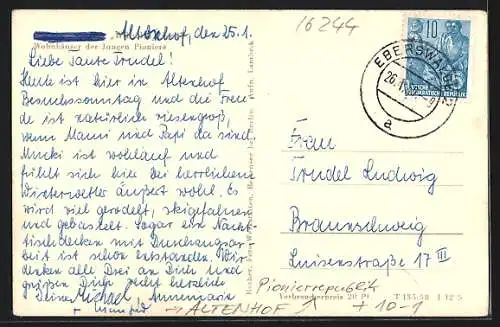 Altenhof, den 25.1.
Wohnhäuser der Jungen Pioniere
Liebe Tante Trudel!
Heute ist hier in Altenhof
Besuchssonntag und die Freu-
de ist natürlich riesengroß,
wenn Manni und Papi da sind.
Mucki ist wohlauf und
fühlt sich hier bei herrlichem
Winterwetter äußert wohl. Es
wird viel gerodelt, skigefahren
und gebastelt. Sogar ein Näh-
tischdecken mit Durchzugsar-
beit ist schon entstanden. Wir
denken alle Drei an Dich und
grüßen Dich sehr herzlich
Deine Michael, Annemarie
Manfred
16244
10
DEUTSCHE
DEMOKRATISCHE REPUBLIK
EBERSWALDE
26.1.
a
Frau
Trudel Ludwig
Braunschweig
Luisenstraße 17 III
Pionierrepublik
Verbraucherpreis 20 Pf
→ ALTENHOF
10-1